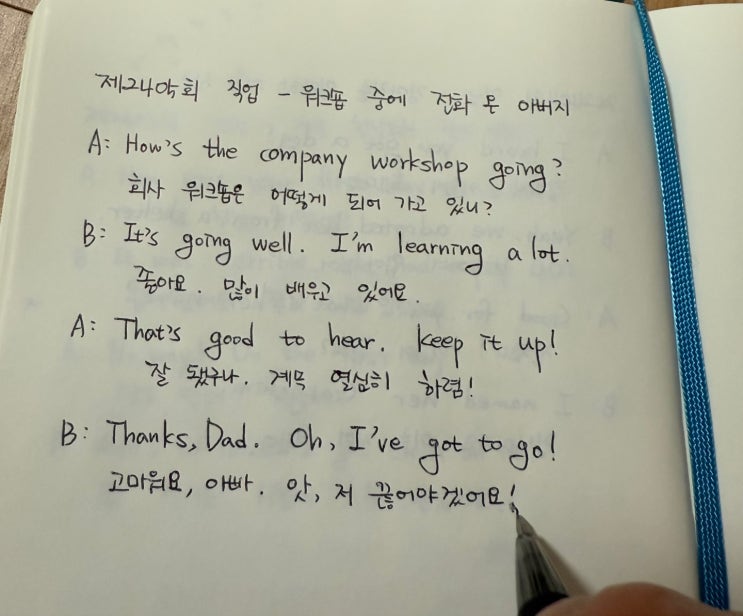 제24악회 직업 - 워크숍 중에 전화 온 아버지
A: How's the company workshop going?
회사 워크숍은 어떻게 되어 가고 있니?
B: It's going well. I'm learning a lot.
좋아요. 많이 배우고 있어요.
A: That's good to hear. Keep it up!
잘 됐구나. 계속 열심히 하렴!
B: Thanks, Dad. Oh, I've got to go!
고마워요, 아빠. 앗, 저 끊어야겠어요!